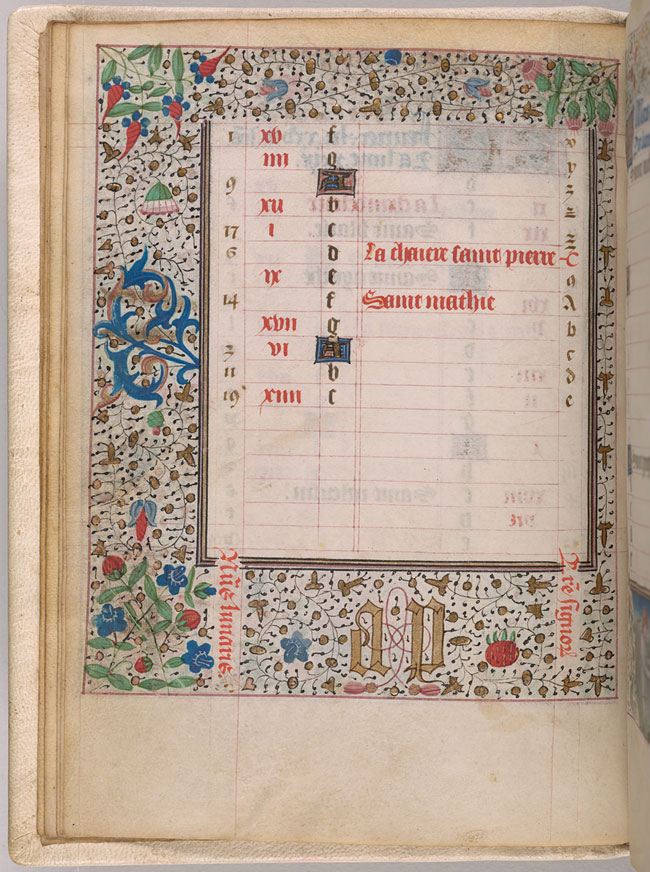 1 xv f v
iiii g y
9 A z
xii b
17 i c
6 d La chaiere saint pierre c
ix e 9
14 f Saint mathie A
xvii g b
3 vi A c
11 b d
19 xiiii c e
Nūs lunaris.